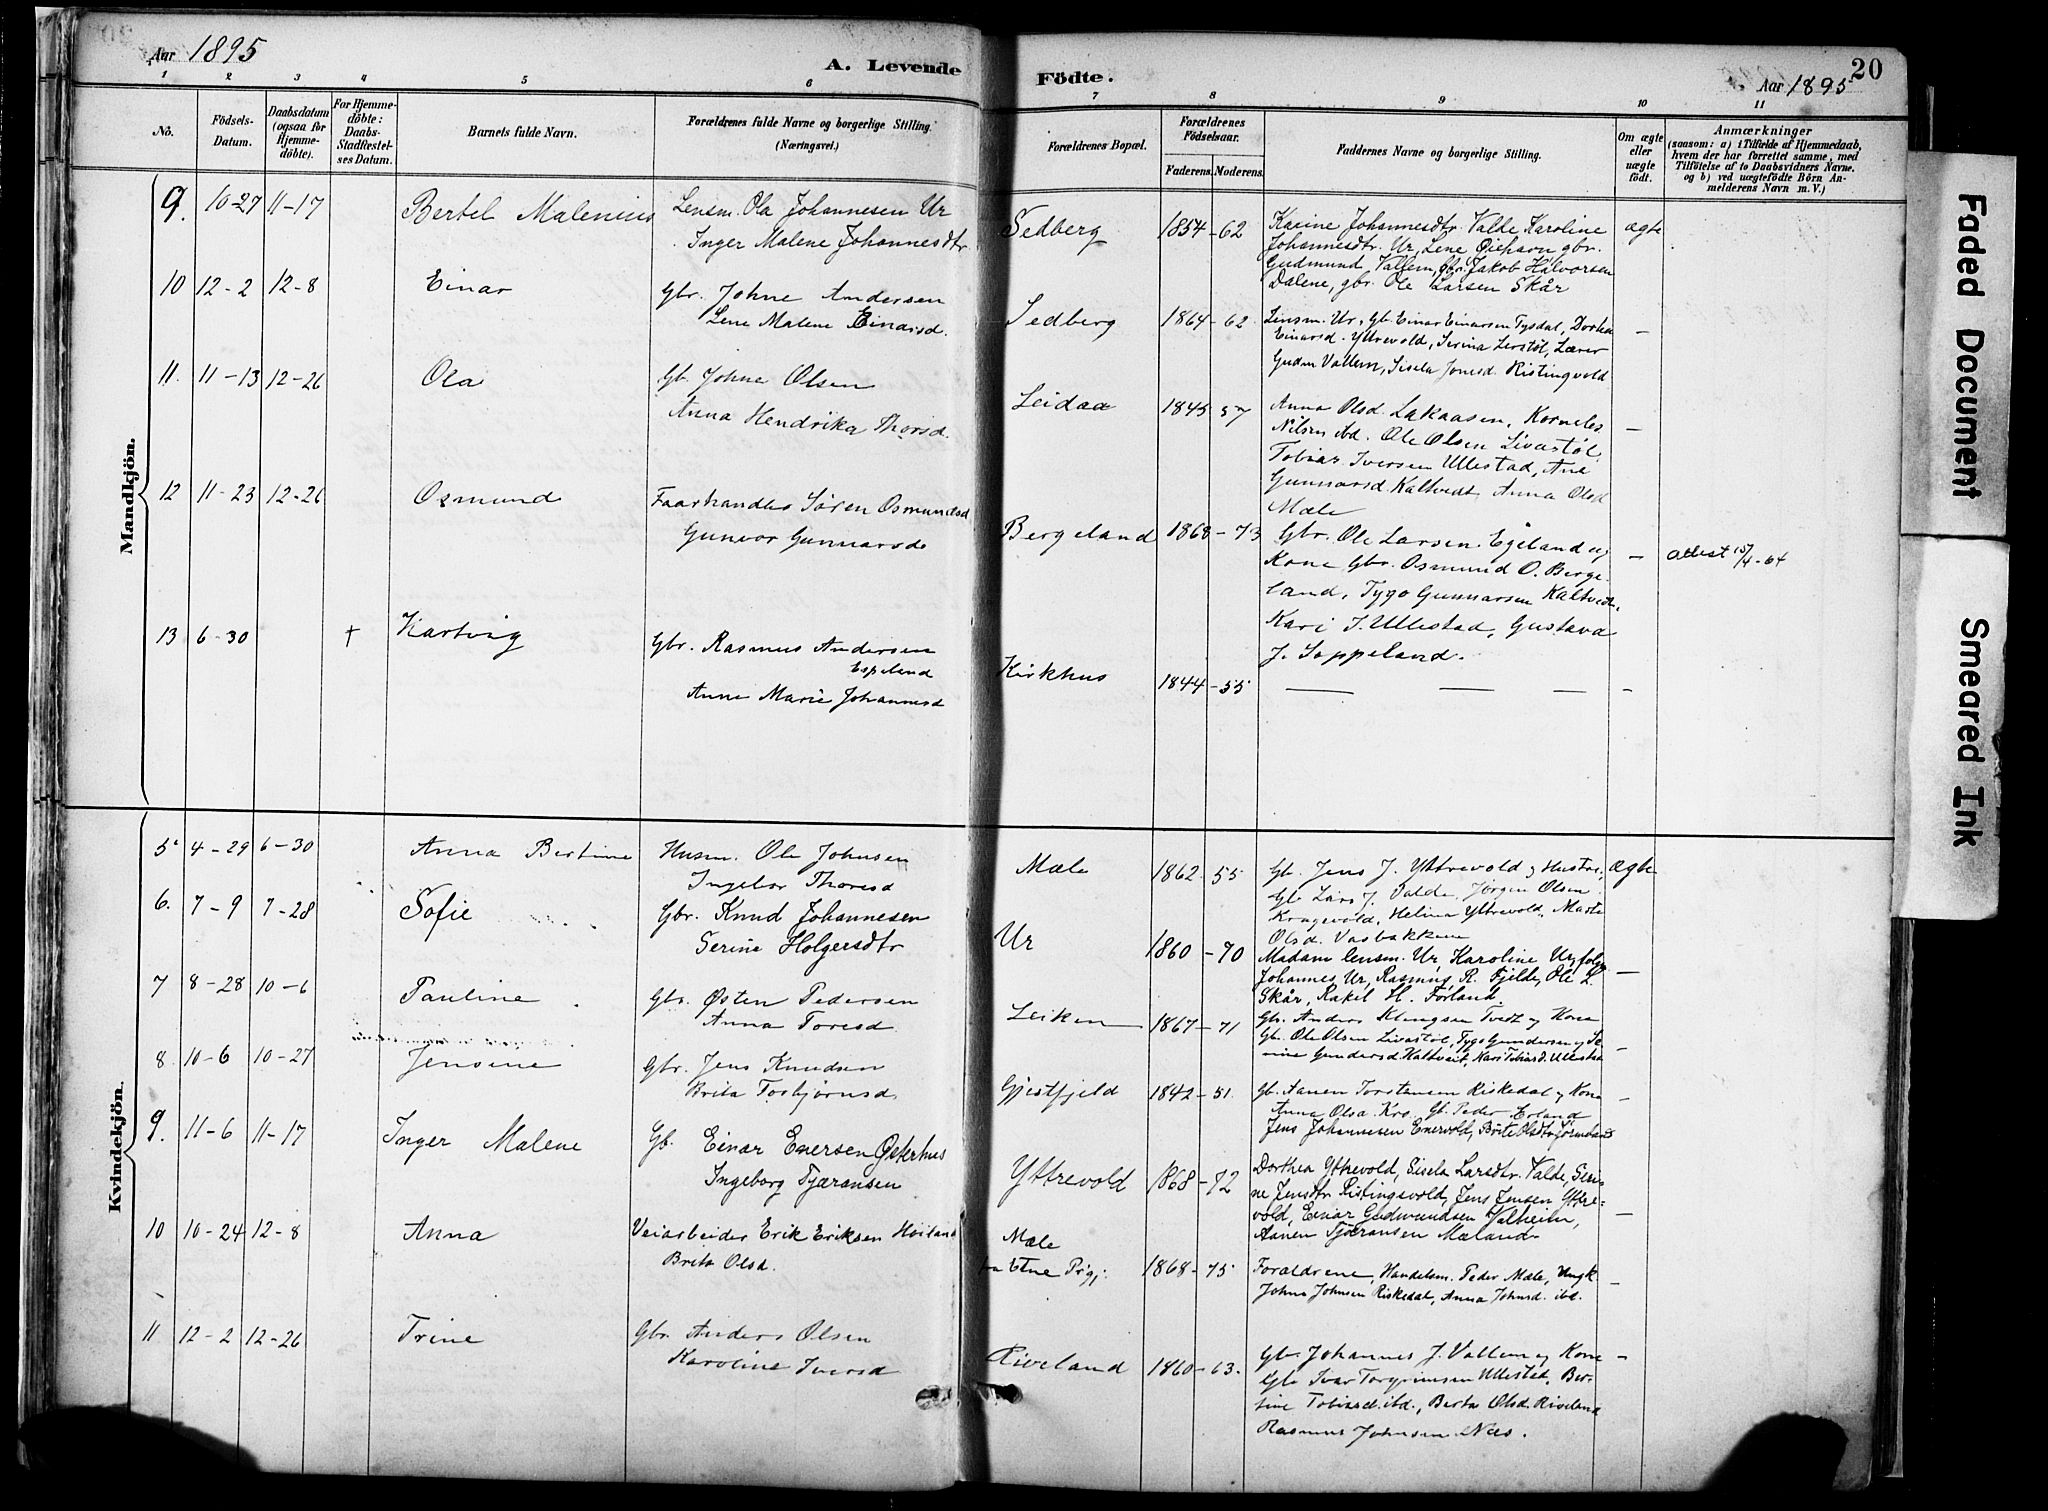 Aar 1895
A. Levende
Födte.
Aar 1895
20
1 2 3 4 5 6 7 8 9 10 11
No.
Födsels-
Datum.
Daabsdatum
(ogsaa for
Hjemme-
döbte).
For Hjemme-
döbte:
Daabs-
Stadfestel-
ses Datum.
Barnets fulde Navn.
Forældrenes fulde Navne og borgerlige Stilling.
(Næringsvei.)
Forældrenes Bopæl.
Forældrenes
Födselsaar.
Faderens. Moderens.
Faddernes Navne og borgerlige Stilling.
Om ægte
eller
uægte
födt.
Anmærkninger
(saasom: a) i Tilfælde af Hjemmedaab,
hvem der har forrettet samme, med
Tilföielse af to Daabsvidners Navne.
og b) ved uægtefödte Börn An-
melderens Navn m. V.)
Mandkjön.
9. 10-27 11-17 Bertel Malenius Lensm. Ola Johannesen Ur
Inger Malene Johannesdtr
Sedberg 1854-62
Karine Johannesdtr. Valde Karoline
Johannesdtr. Ur, Lene Øiehavn gbr.
Gudmund Vallem, Gbr. Jakob Halvorsen
Dalene, gbr. Ole Larsen Skår
ægte
10 12-2 12-8 Einar Gbr. Johne Andersen
Lene Malene Einarsd.
Sedberg 1864-62
Linsm. Ur, Gb. Einar Einarsen Tysdal, Dorthea
Einarsd. Yttrevold, Serina Lerstøl, Lærer
Gudm Vallem, Sisela Jonesd. Ristingvold
—
11. 11-13 12-26 Ola Gb. Johne Olsen
Anna Hendrika Thorsd.
Leidaa 1845 57
Anna Olsd. Lakaasen, Kornelis
Nilsen ibd. Ole Olsen Livastøl,
Tobias Iversen Ullestad, Ana
Gunnarsd. Kaltvedt, Anna Olsd
Mæle
—
12 11-23 12-26 Osmund Faarhandler Søren Osmundsd
Gunvor Gunnarsd.
Bergeland 1868-73
Gbr. Ole Larsen Egeland og
Kone Gbr. Osmund O. Berge-
land, Tygo Gunnarsen Kaltvedt,
Kari J. Ullestad, Gustava
J. Soppeland.
—
Attest 15/4-64
13 6-30 + Hartvig Gbr. Rasmus Andersen
Espeland
Anne Marie Johannesd
Kirkhus 1844-55 — — — —
Kvindekjön.
5. 4-29 6-30 Anna Bertine Husm. Ole Johnsen
Ingebor Thoresd
Mæle 1862 55
Gb. Jens J. Yttrevold og Hustru,
Gb Lars J. Valde, Jørgen Olsen
Kragevold, Helina Yttrevold, Marte
Olsd. Vasbakkene
ægte
6. 7-9 7-28 Sofie Gbr. Knud Johannesen
Serine Holgersdtr
Ur 1860-70
Madam lensm. Ur Karoline Ur, folg.
Johannes Ur, Rasmus R. Fjelde, Ole L.
Skår, Rakel H. Førland.
—
7 8-28 10-6 Pauline Gbr. Østen Pedersen
Anna Toresd
Leiken 1867-71
Gbr. Anders Klungsen Tvedt og Kone
Gb. Ole Olsen Livastøl, Tygo Gundersen og Se-
rine Gundersd. Kaltveit, Kari Tobiasd. Ullestad
—
8. 10-6 10-27 Jensine Gbr. Jens Knudsen
Brita Torbjørnsd.
Gjestfjeld 1842-51
Gb. Aanen Torstensen Riskedal og Kone
Anna Olsa Kro. Gb. Peder Erland
Jens Johannesen Enervold, Brite Olsdtr
—
9. 11-6 11-17 Inger Malene Gb. Einar Enersen Østerhus
Ingeborg Tjæransen
Yttrevold 1868-72
Dorthea Yttrevold, Sisela Larsdtr. Valde, Seri-
ne Jensdtr Ristingsvold, Jens Jensen Yttre-
vold, Einar Gudmundsen Valheim,
Aanen Tjæransen Mæland.
—
10 10-24 12-8 Anna Veiarbeider Erik Eriksen Høiland
Brita Olsd.
Mæle
fra Etne Prgj. 1868-75
Forældrene, Handelsm. Peder Mæle, Ungk.
Johne Johnsen Riskedal, Anna Johnsd. ibd.
—
11 12-2 12-26 Trine Gbr. Anders Olsen
Karoline Iversd
Riveland 1860-63.
Gb. Johannes J. Vallem og Kone
Gb Ivar Torgrimsen Ullestad, Ber-
tine Tobiasd. ibd., Berta Olsd. Riveland
Rasmus Johnsen Næs.
—
Faded Document
Smeared Ink